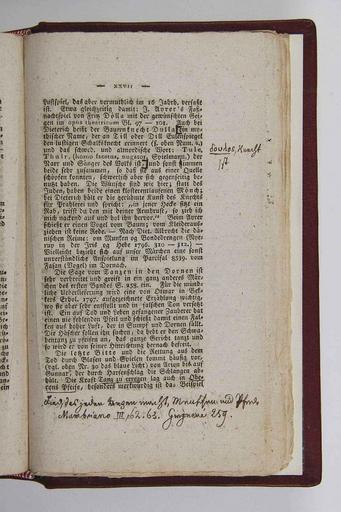 — XXVII —
Possspiel, das aber vermuthlich im 16 Jahrh. verfaßt
ist. Etwa gleichzeitig damit: J. Ayrer's Faß-
nachtspiel von Fritz Dölla mit der gewünschten Gei-
gen im opus theatricum Bl. 97 — 101. Auch bei
Dieterich heißt der Bauernknecht Dulla, ein my-
thischer Name, der an Till oder Dill Eulenspiegel
den lustigen Schalksknecht erinnert (s. oben Num. 61)
und das schwed. und altnordische Wort: Tule,
Thulr, (homo facetus, nugator, Spielmann,) der
Narr und Sänger des Volks ist, und sonst stimmen
beide sehr zusammen, so daß sie aus einer Quelle
schöpfen konnten, schwerlich aber sich gegenseitig be-
nutzt haben. Die Wünsche sind wie hier; statt des
Juden, haben beide einen klosterentlaufenen Mönch;
bei Dieterich hält er die gerühmte Kunst des Knechts
für Prahlerei und spricht: „in jener Hecke sitzt ein
Rab, triffst du den mit deiner Armbrust, so zieh ich
mich nackend auf und hol ihn hervor." Beim Ayrer
schießt er einen Vogel vom Baum; vom Kleideraus-
ziehen ist keine Rede. — Nach Diet. Albrecht die dä-
nischen Reime: om Munken og Bondedrengen (Nye-
rup in der Iris og Hebe 1796. 310 — 312.) —
Vielleicht bezieht sich auf unser Märchen eine sonst
unverständliche Anspielung im Parcifal 8539. vom
Fasan (Vogel) im Dornach.
Die Sage vom Tanzen in den Dornen ist
sehr verbreitet und greift in ein ganz anderes Mär-
chen des ersten Bandes S. 258. ein. Für die münd-
liche Ueberlieferung wird eine von Otmar in Bek-
kers Erhol. 1797. aufgezeichnete Erzählung wichtig,
wo sie aber sehr entstellt und in falschen Ton versetzt
ist. Ein auf Tod und Leben gefangener Zauberer hat
einen nie fehlenden Pfeil und schießt damit einen Fal-
ken aus hoher Luft, der in Sumpf und Dornen fällt.
Die Häscher sollen ihn suchen, da hebt er den Schwa-
bentanz zu pfeifen an, das ganze Gericht tanzt und
so wird er von seiner Hinrichtung hernach befreit.
Die letzte Bitte und die Rettung aus dem
Tod durch Blasen und Spielen kommt häufig vor,
(vgl. oben Nr. 30 das blaue Licht) von Arion bis auf
Gunnar, der durch Harfenschlag die Schlangen ab-
hält. Die Kraft Tanz zu erregen lag auch in Obe-
rons Pfeife, besonders merkwürdig ist das Beispiel
δουλος, Knecht
ist
Lied das jeden tanzen macht, Menschen und Pferde
Mambriano III, 62. 63. Ginguené 259.